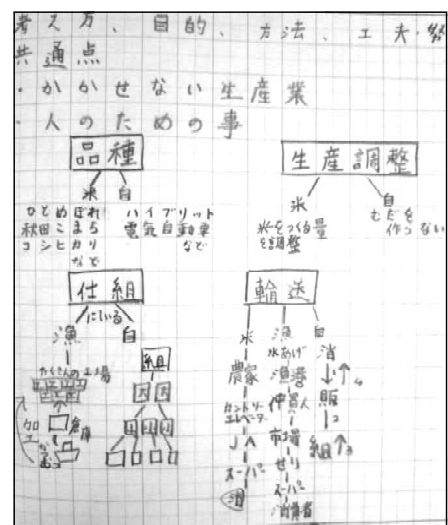 考え方、目的、方法、工夫・努
共通点
・かかせない生産業
・人のための事
品種
米 自
ひとめぼれ
秋田こまち
コシヒカリ
など
ハイブリット
電気自動車
など
生産調整
米 自
米をつくる量
を調整
むだを
作らない
仕組
にている
漁 自
たくさんの工場
倉庫
加工
組
輸送
米 漁 自
農家
カントリー
エレベーター
JA
スーパー
消
水あげ
漁港
仲買人
市場
せり
スーパー
消費者
消
販
組